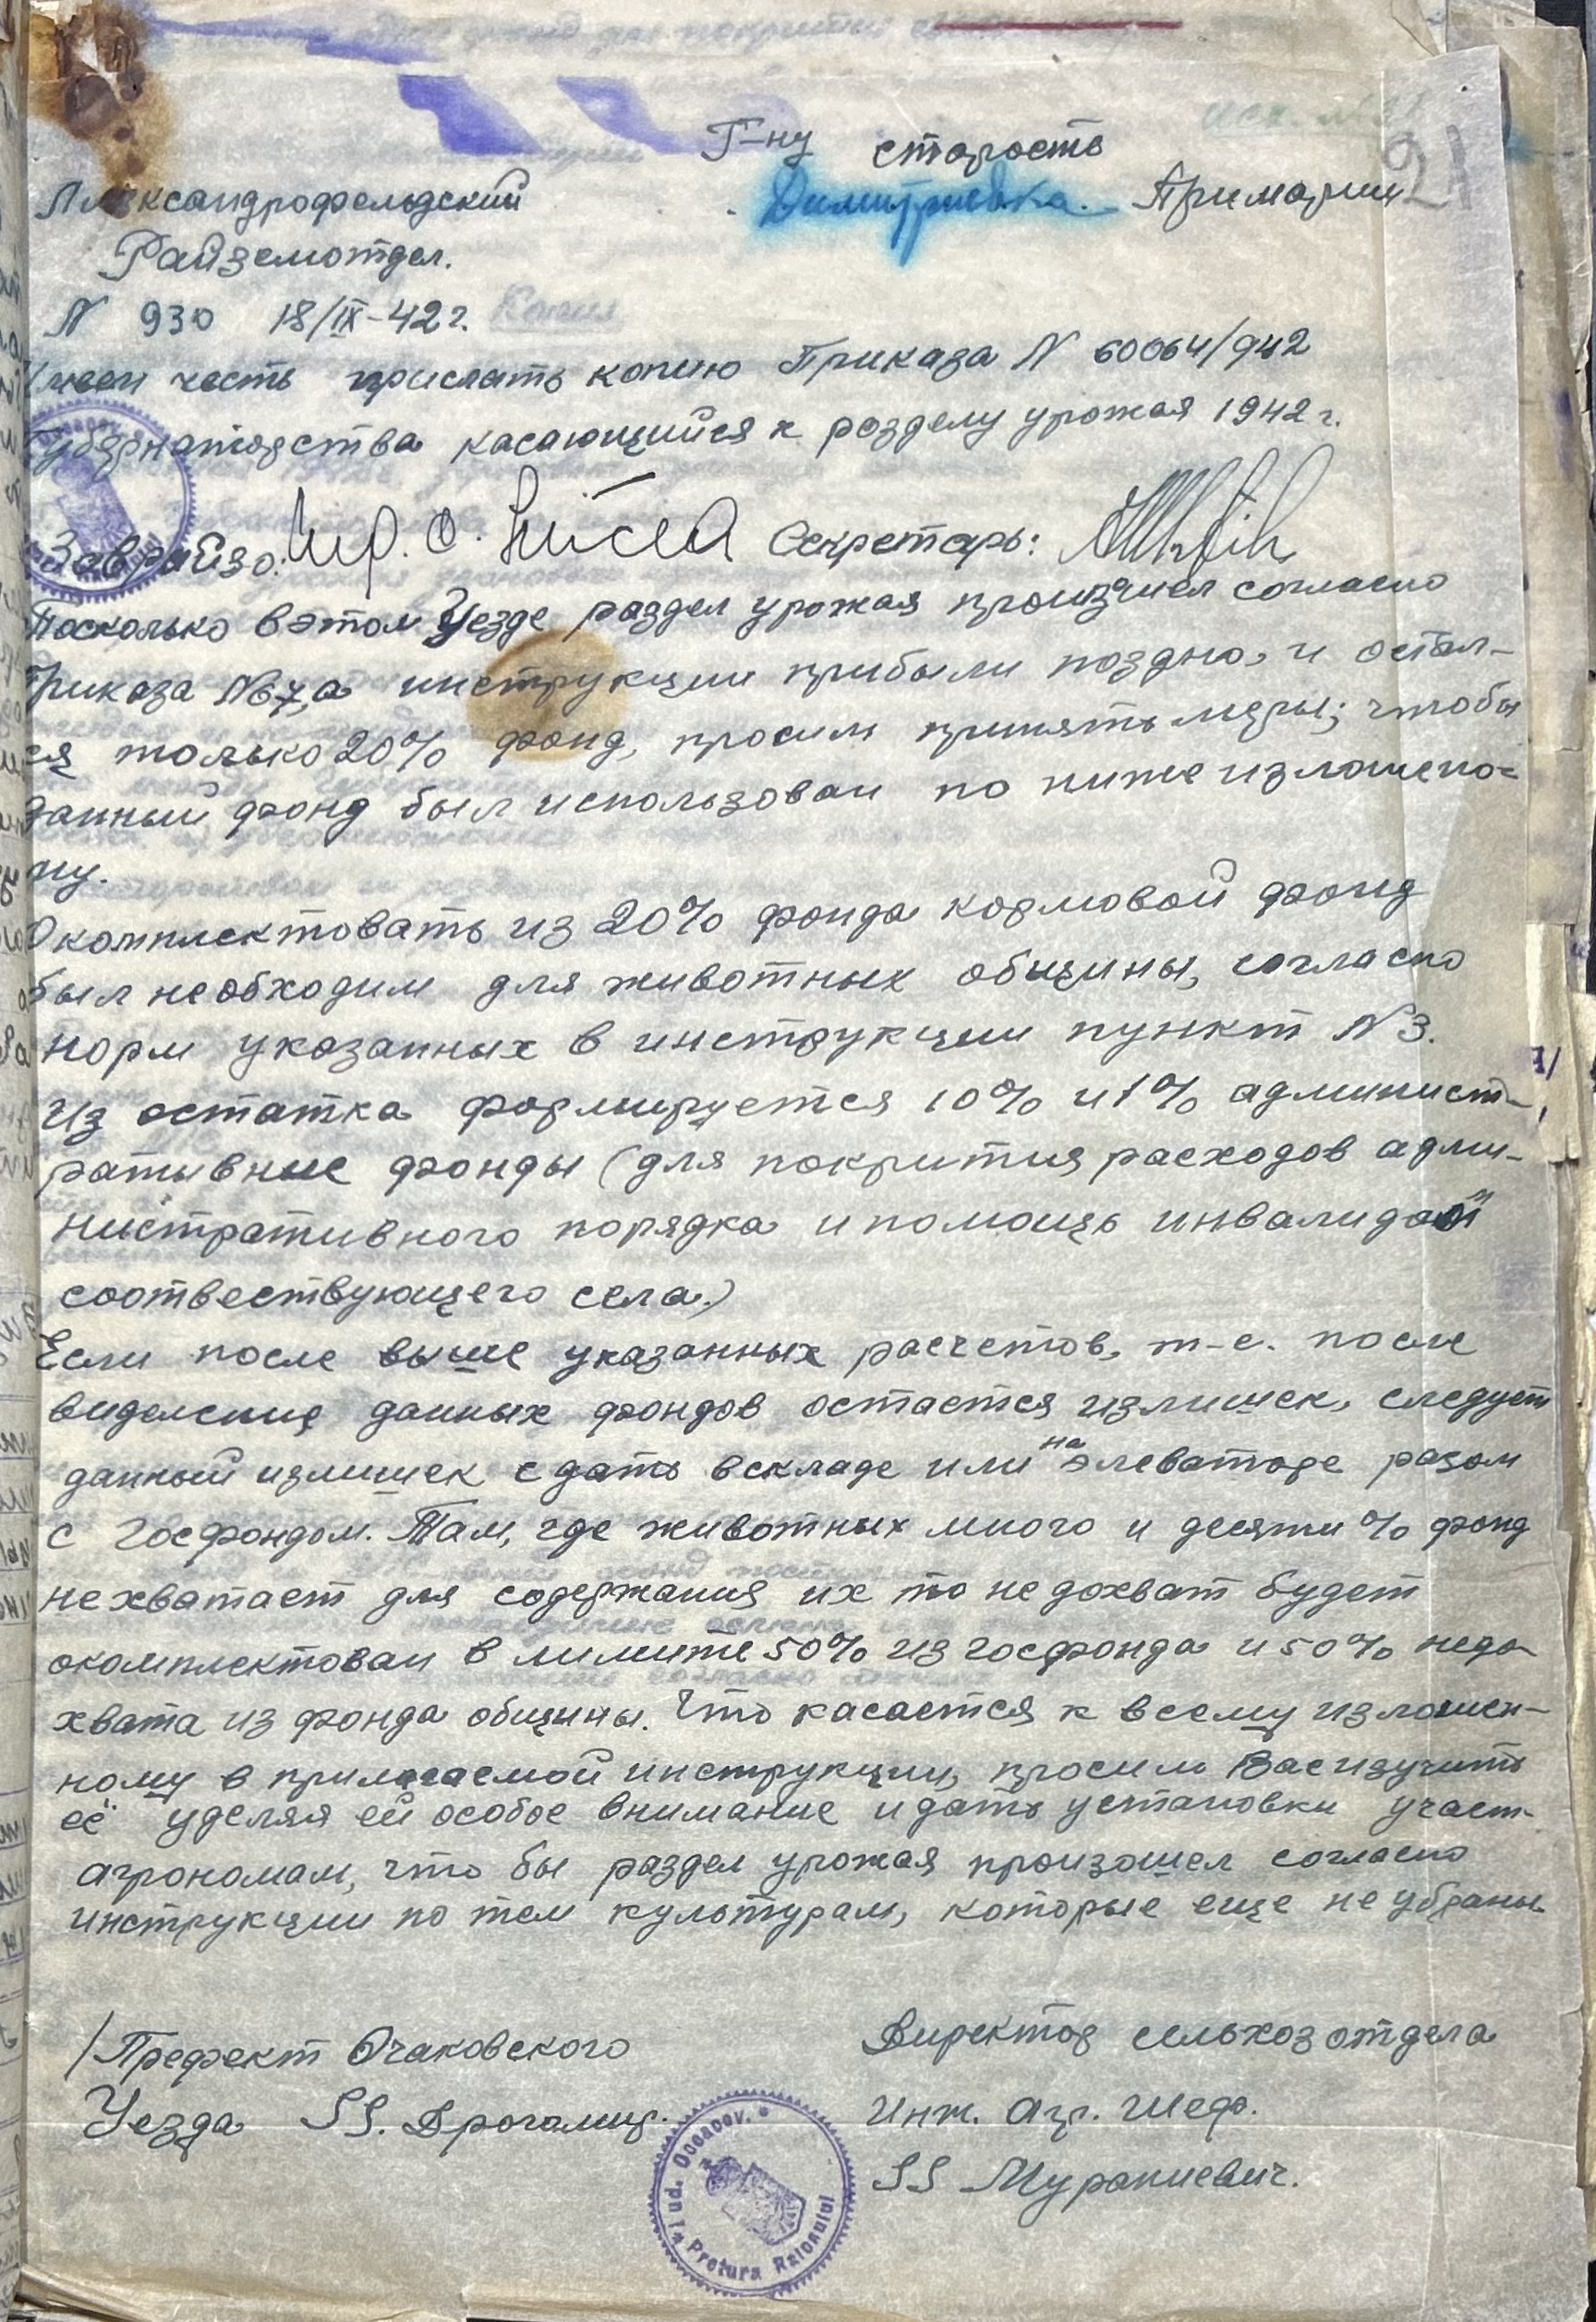 21
Г-ну старость
Димитриевка. Примарии
Александрофельдский
Райземотдел.
N 930 18/IX-42 г.
Имеем честь прислать копию Приказа N 60064/942
Губернаторства касающийся к разделу урожая 1942 г.
Заврайзо: Секретарь:
Поскольку в этом Уезде раздел урожая произшел согласно
Приказа №67, а инструкции прибыли поздно, и остал-
ся только 20% фонд, просим принять меры; чтобы
данный фонд был использован по ниже изложено-
му.
Окомплектовать из 20% фонда кормовой фонд
был необходим для животных общины, согласно
норм указанных в инструкции пункт N 3.
Из остатка формируется 10% и 1% админист-
ративные фонды (для покрития расходов адми-
нистративного порядка и помощь инвалидам
соотвествующего села.)
Если после выше указанных расчетов, т-е. после
виделения данных фондов остается излишек, следует
данный излишек сдать в складе или на элеваторе разом
с Госфондом. Там, где животных много и десяти % фонд
не хватает для содержания их то не дохват будет
окомплектован в лимите 50% из госфонда и 50% недо-
хвата из фонда общины. Что касается к всему изложен-
ному в прилагаемой инструкции, просим Вас изучить
её уделяя ей особое внимание и дать установки участ.
агрономам, что бы раздел урожая произошел согласно
инструкции по тем культурам, которые еще не убраны.
/Префект Очаковского
Уезда SS. Дрогомир.
Директор сельхоз отдела
Инж. Агр. Шеф.
SS Муракиевич.
Jud. Oceacov.
Pretura Raionului